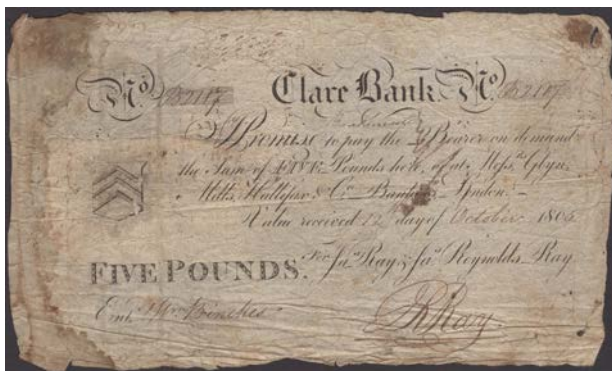 No. B2117 Clare Bank. No. B2117
I Promise to pay the Bearer on demand
the Sum of FIVE Pounds here, or at Messrs. Glyn,
Mills, Hallifax & Co. Bankers London.
Value received 12 day of October 1805
FIVE POUNDS. For Jas. Ray & Jas. Reynolds Ray
Entd. Wm.
JRRay.